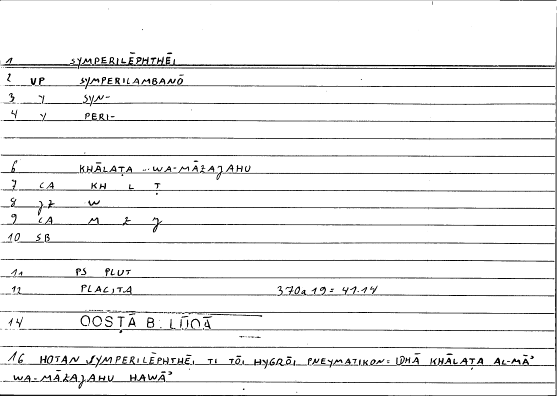 1 SYMPERILĒPHTHĒI
2 VP SYMPERILAMBANŌ
3 Y SYN-
4 Y PERI-
6 KHĀLAṬA ... WA-MĀZAJAHU
7 CA KH L Ṭ
8 JZ W
9 CA M Z J
10 SB
11 PS PLUT
12 PLACITA 370a19 = 41.14
14 QOSṬĀ B. LŪQĀ
16 HOTAN SYMPERILĒPHTHĒI TI TŌI HYGRŌI PNEYMATIKON = IDHĀ KHĀLAṬA AL-MĀʾ
WA-MĀZAJAHU HAWĀʾ